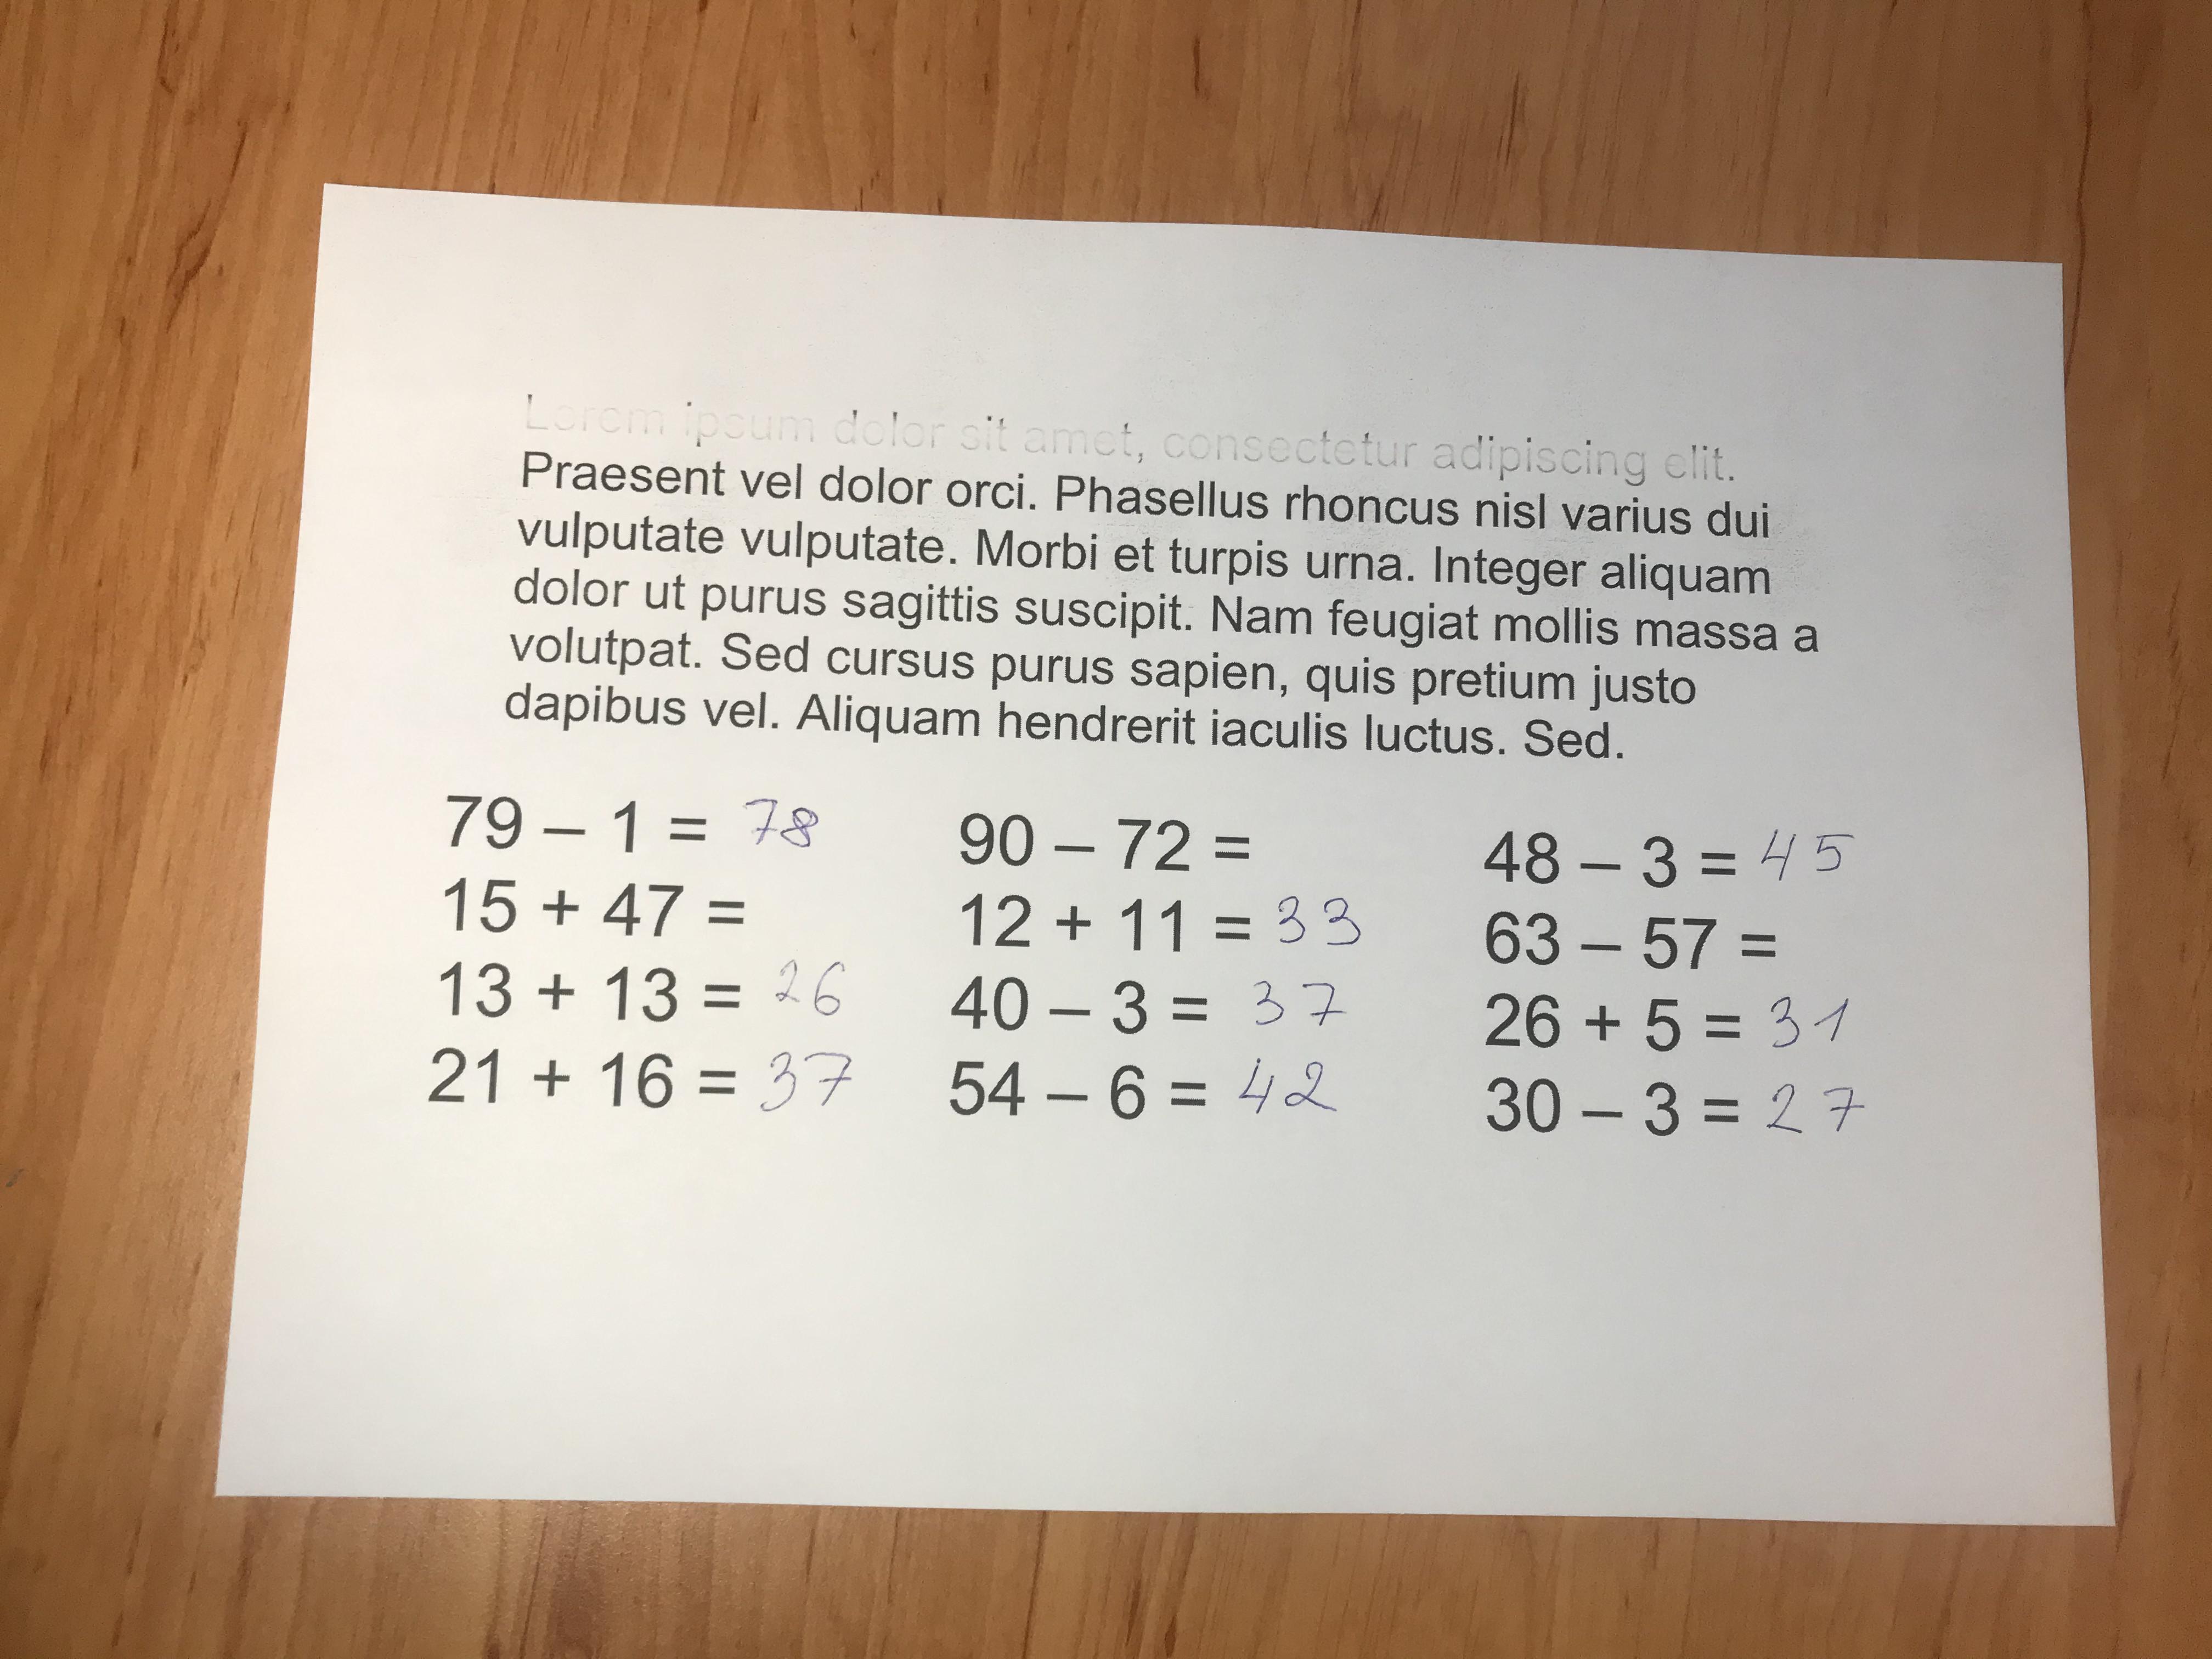 Lorem ipsum dolor sit amet, consectetur adipiscing elit.
Praesent vel dolor orci. Phasellus rhoncus nisl varius dui
vulputate vulputate. Morbi et turpis urna. Integer aliquam
dolor ut purus sagittis suscipit. Nam feugiat mollis massa a
volutpat. Sed cursus purus sapien, quis pretium justo
dapibus vel. Aliquam hendrerit iaculis luctus. Sed.
79 – 1 = 78
15 + 47 =
13 + 13 = 26
21 + 16 = 37
90 – 72 =
12 + 11 = 33
40 – 3 = 37
54 – 6 = 42
48 – 3 = 45
63 – 57 =
26 + 5 = 31
30 – 3 = 27